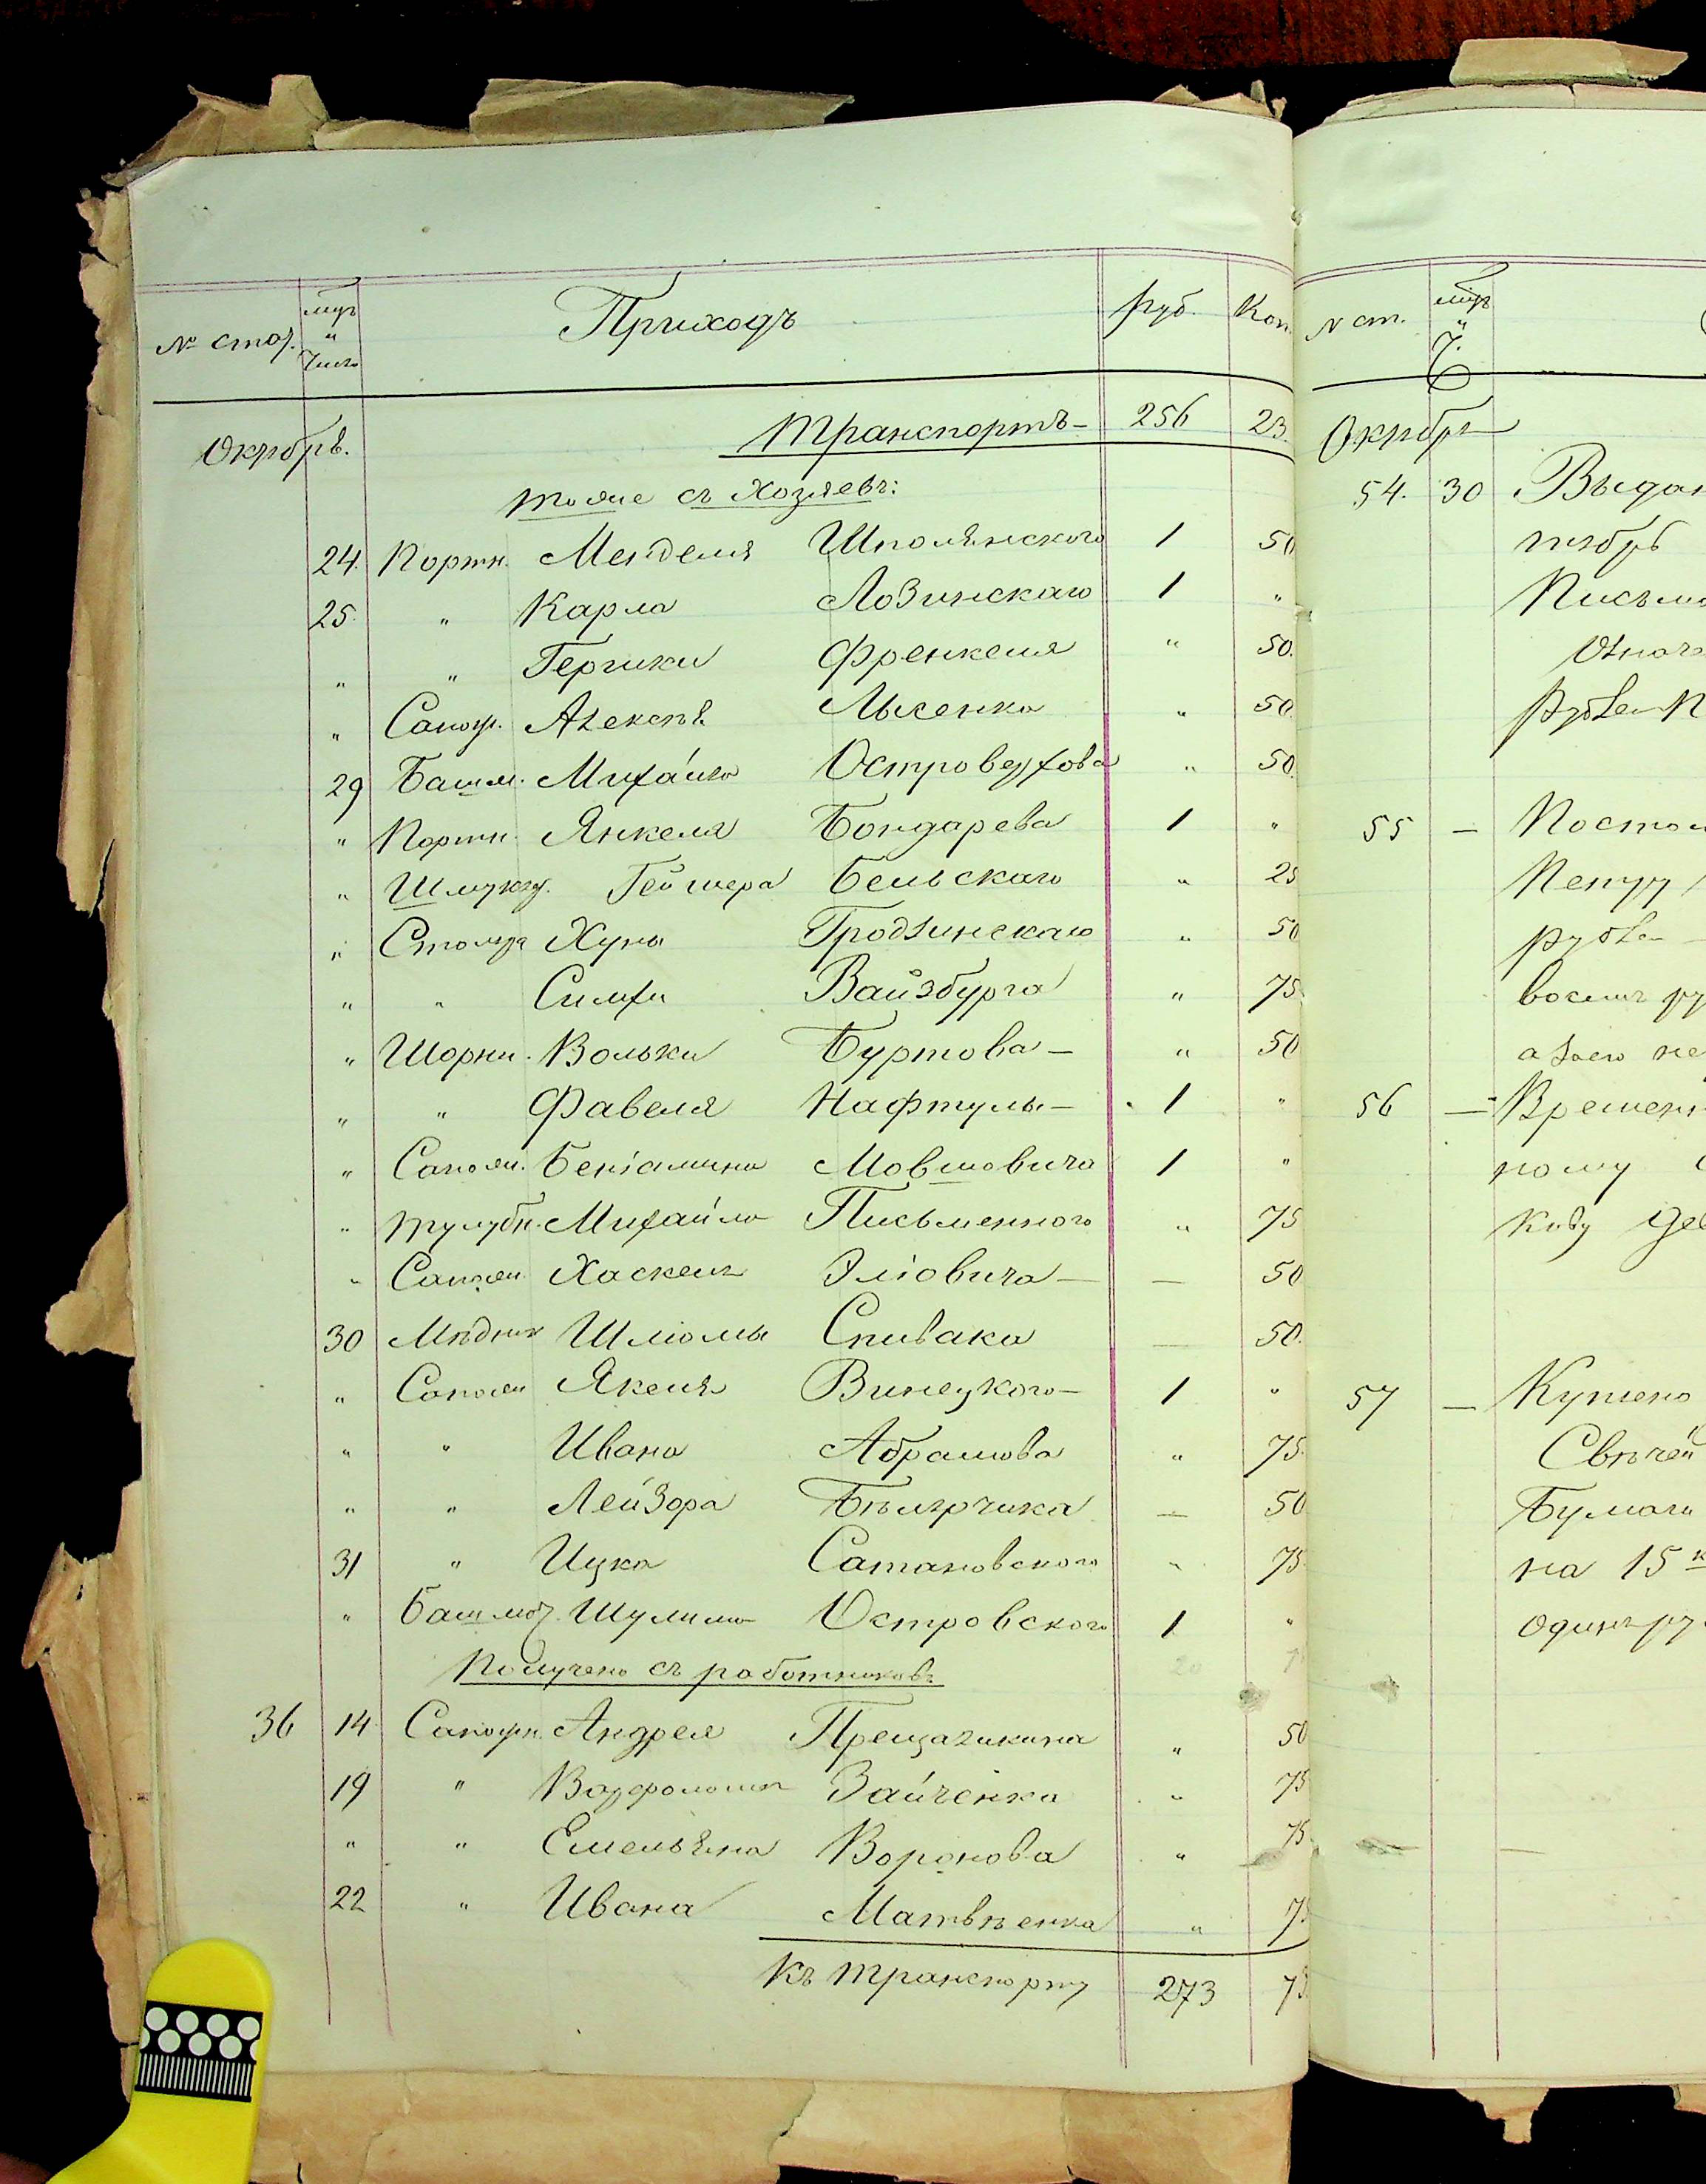 № стат. мцъ и число Приходъ руб. Коп.
Октябрь. Транспортъ — 256 23.
тоже съ Хозяевъ:
24. Портн. Менделя Шполянского 1 50
25. " Карла Лозинскаго 1 "
" " Гершки Френкеля " 50.
" Сапож. Алексѣя Лысенка " 50.
29 Башм. Михайла Островерхова " 50.
" Портн. Янкеля Бондарева 1 "
" Бельскаго " 25
" Столяра Хуны Гродзинскаго " 50
" " Симхи Вайзбурга " 75.
" Шорни. Вольки Буртова — " 50
" " Фавеля Нафтулы — 1 "
" Сапожн. Беніамина Мовшовича 1 "
" тулубн. Михайла Письменного " 75
" Сапожн. Хаскеля Эліовича — — 50
30 Мѣдник Шліомы Спивака — 50.
" Сапожн Якеля Винецкого — 1 "
" " Ивана Абрамова " 75.
" " Лейзора Бѣлярчика — 50
31 " Ицка Сатановского " 75.
" Башмач. Шулима Островского 1 "
Получено съ работниковъ
36 14 Сапожн. Андрея " 50
19 " Варфоломея Зайченка " 75
" " Емельяна Воронова " 75
22 " Ивана Матвѣенка " 75
Къ транспорту 273 73
N ст. мцъ " Ч.
Октябрь
54. 30 Выдан
тябрь
Письмо

рублей
55 — Постоя

рубле —
восемь ру

56 — Времен
ному

57 — Куплено
Свѣчей
Бумаги
на 15 к
одинъ ру